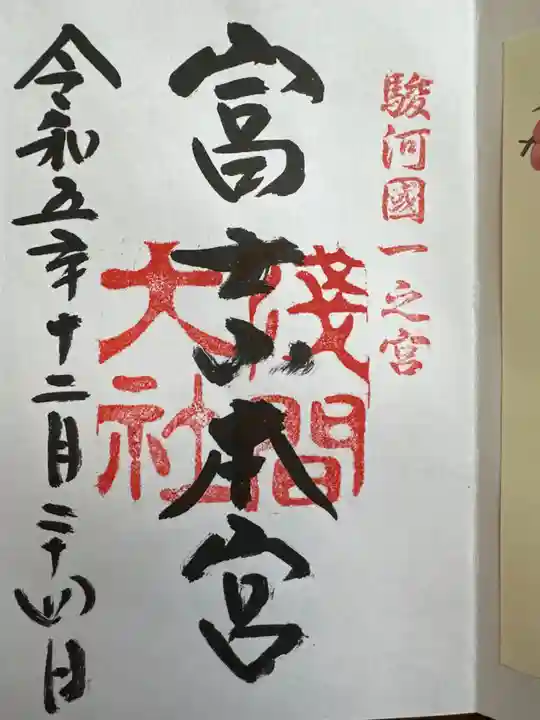 駿河國一之宮
富士山本宮
淺間
大社
令和五年十二月二十四日